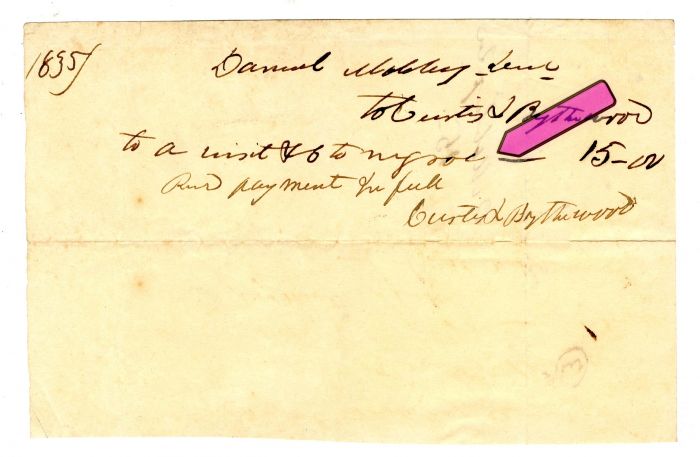 1835
Daniel Mobley Senr
To Curtis & Bythewood
to a visit &c to negroe 15-00
Recd payment in full
Curtis & Bythewood